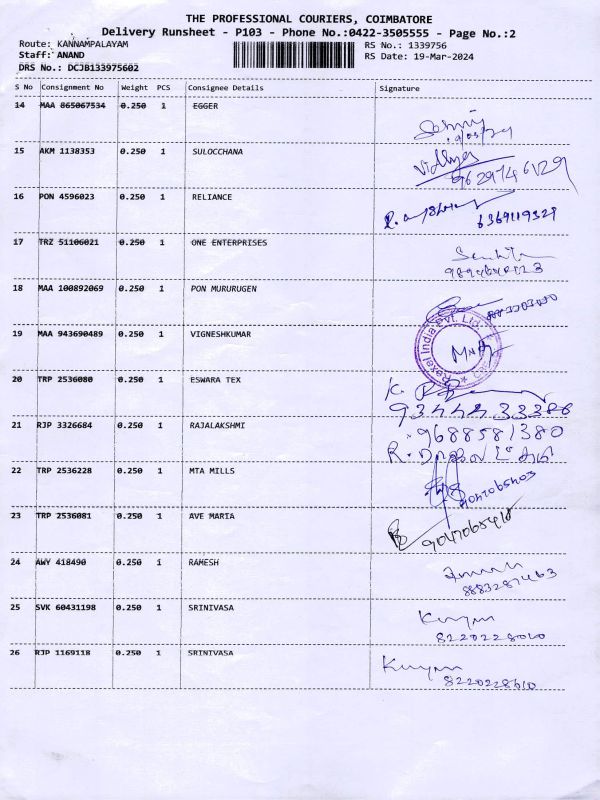 THE PROFESSIONAL COURIERS, COIMBATORE
Delivery Runsheet - P103 - Phone No.:0422-3505555 - Page No.:2
Route: KANNAMPALAYAM RS No.: 1339756
Staff: ANAND RS Date: 19-Mar-2024
DRS No.: DCJB133975602
S No Consignment No Weight PCS Consignee Details Signature
14 MAA 865067534 0.250 1 EGGER
15 AKM 1138353 0.250 1 SULOCCHANA
Vidhya
9629746129
16 PON 4596023 0.250 1 RELIANCE
6369119329
17 TRZ 51106021 0.250 1 ONE ENTERPRISES
18 MAA 100892069 0.250 1 PON MURURUGEN
19 MAA 943690489 0.250 1 VIGNESHKUMAR
Rexel India Pvt. Ltd.
20 TRP 2536080 0.250 1 ESWARA TEX
K.
21 RJP 3326684 0.250 1 RAJALAKSHMI
9688581380
22 TRP 2536228 0.250 1 MTA MILLS
23 TRP 2536081 0.250 1 AVE MARIA
24 AWY 418490 0.250 1 RAMESH
8883287463
25 SVK 60431198 0.250 1 SRINIVASA
8220228610
26 RJP 1169118 0.250 1 SRINIVASA
8220228610